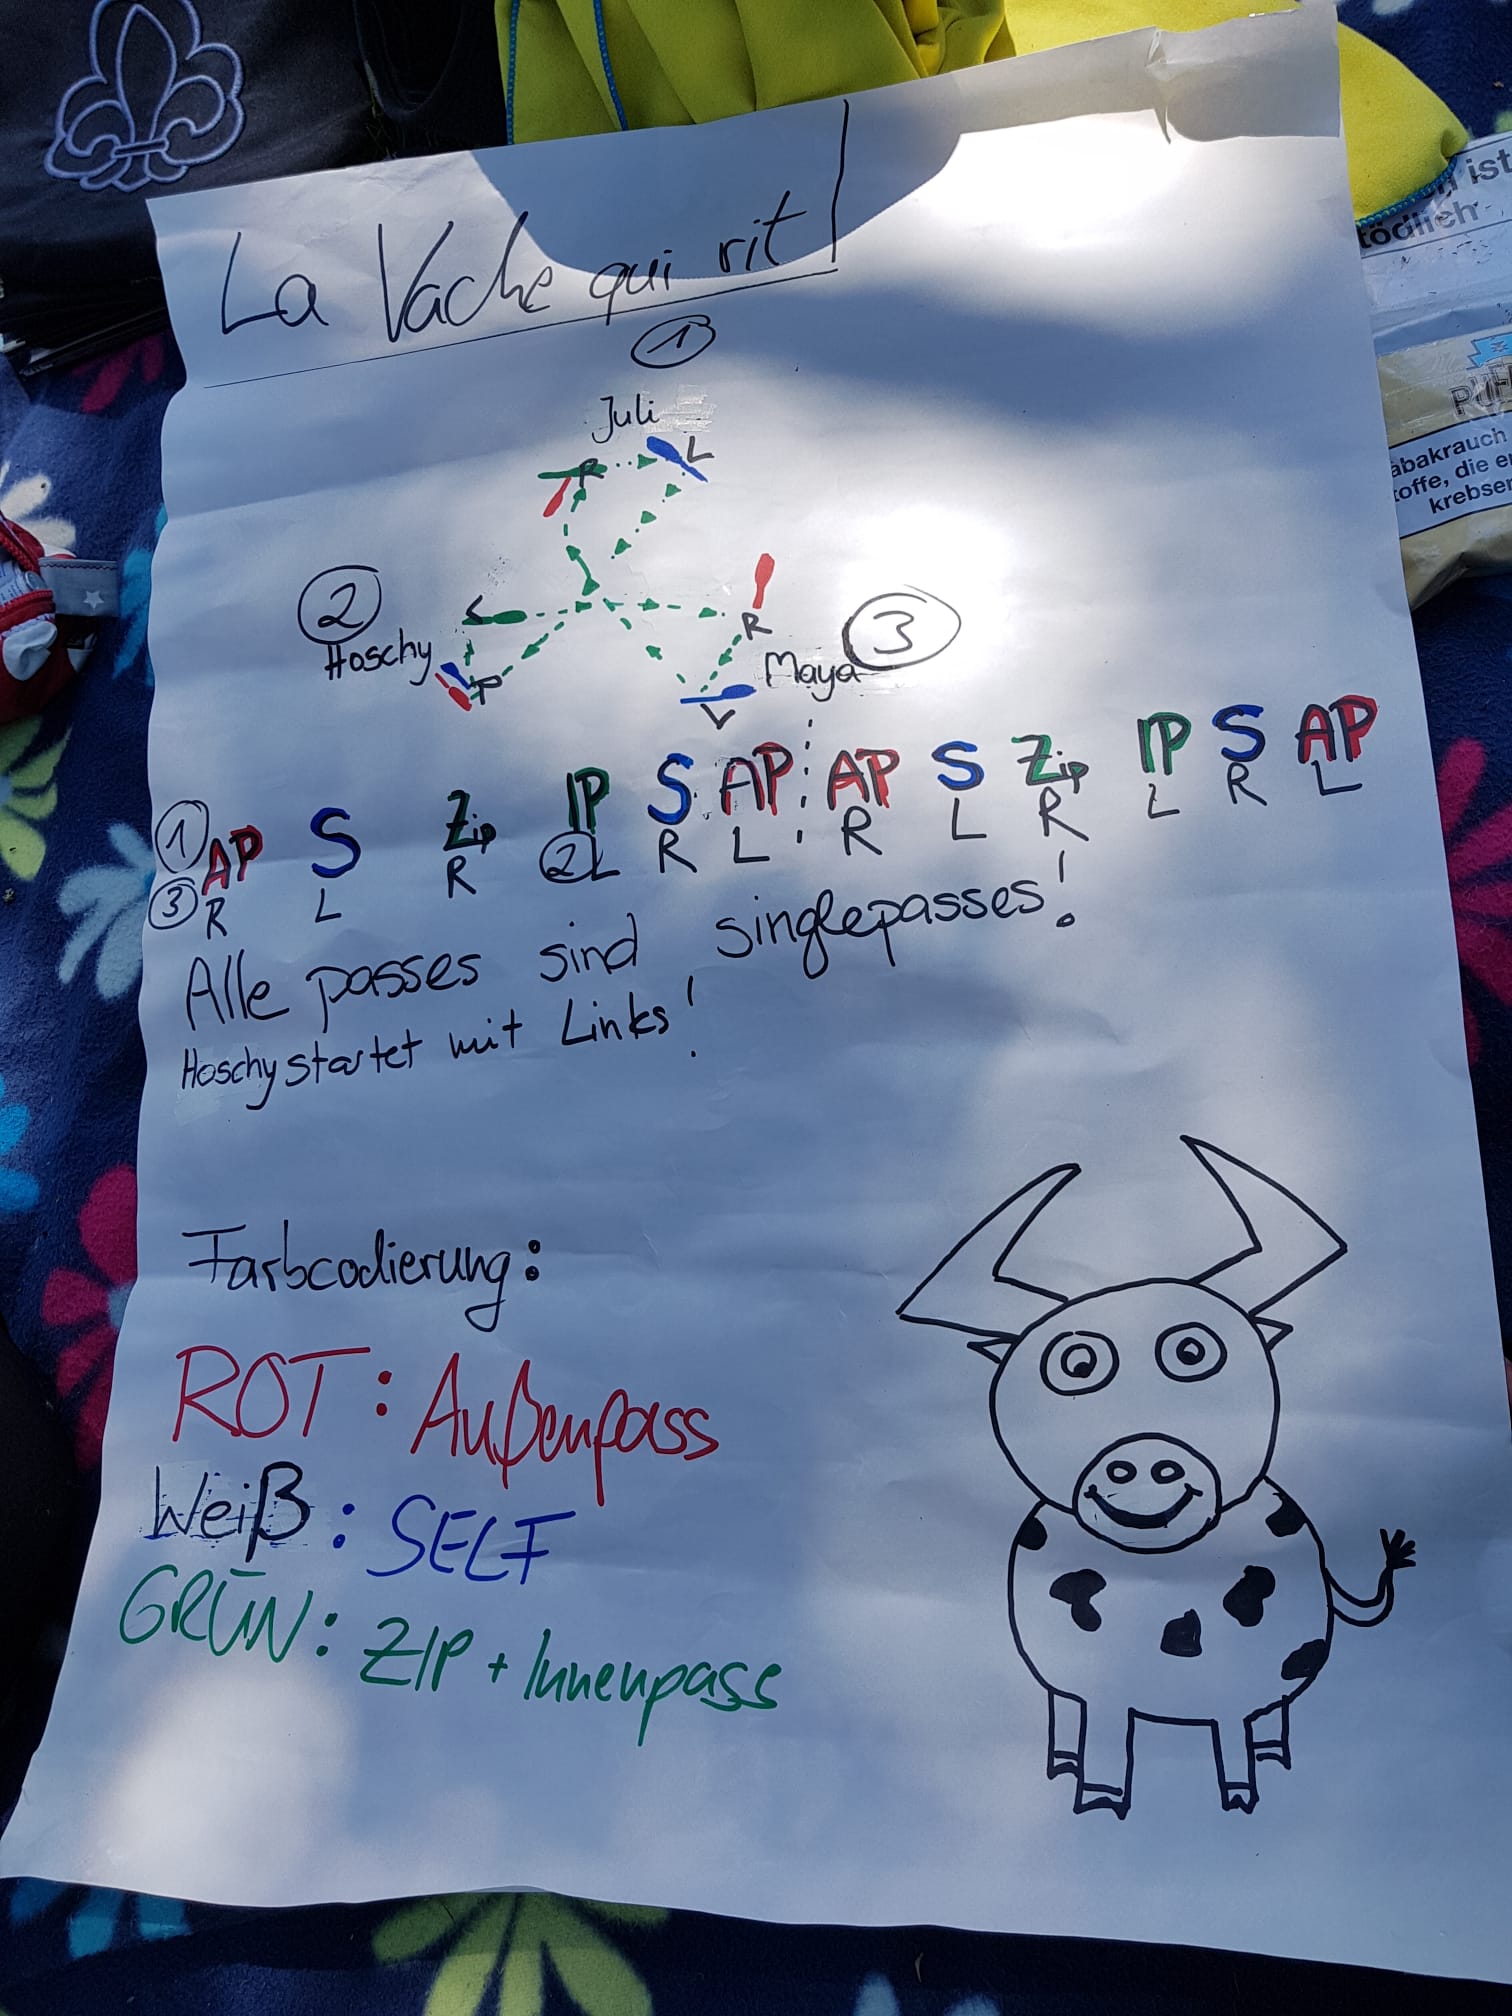 La Vache qui rit!
1
Juli
R
L
2
Hoschy
L
R
R
Maya
3
L
1 AP S Zip IP S AP AP S Zip IP S AP
3 R L R 2 L R L R L R L R L
Alle passes sind singlepasses!
Hoschy startet mit Links!
Farbcodierung:
ROT: Außenpass
Weiß: SELF
GRÜN: ZIP + Innenpass
ist
tödlich
abakrauch
toffe, die er
krebser